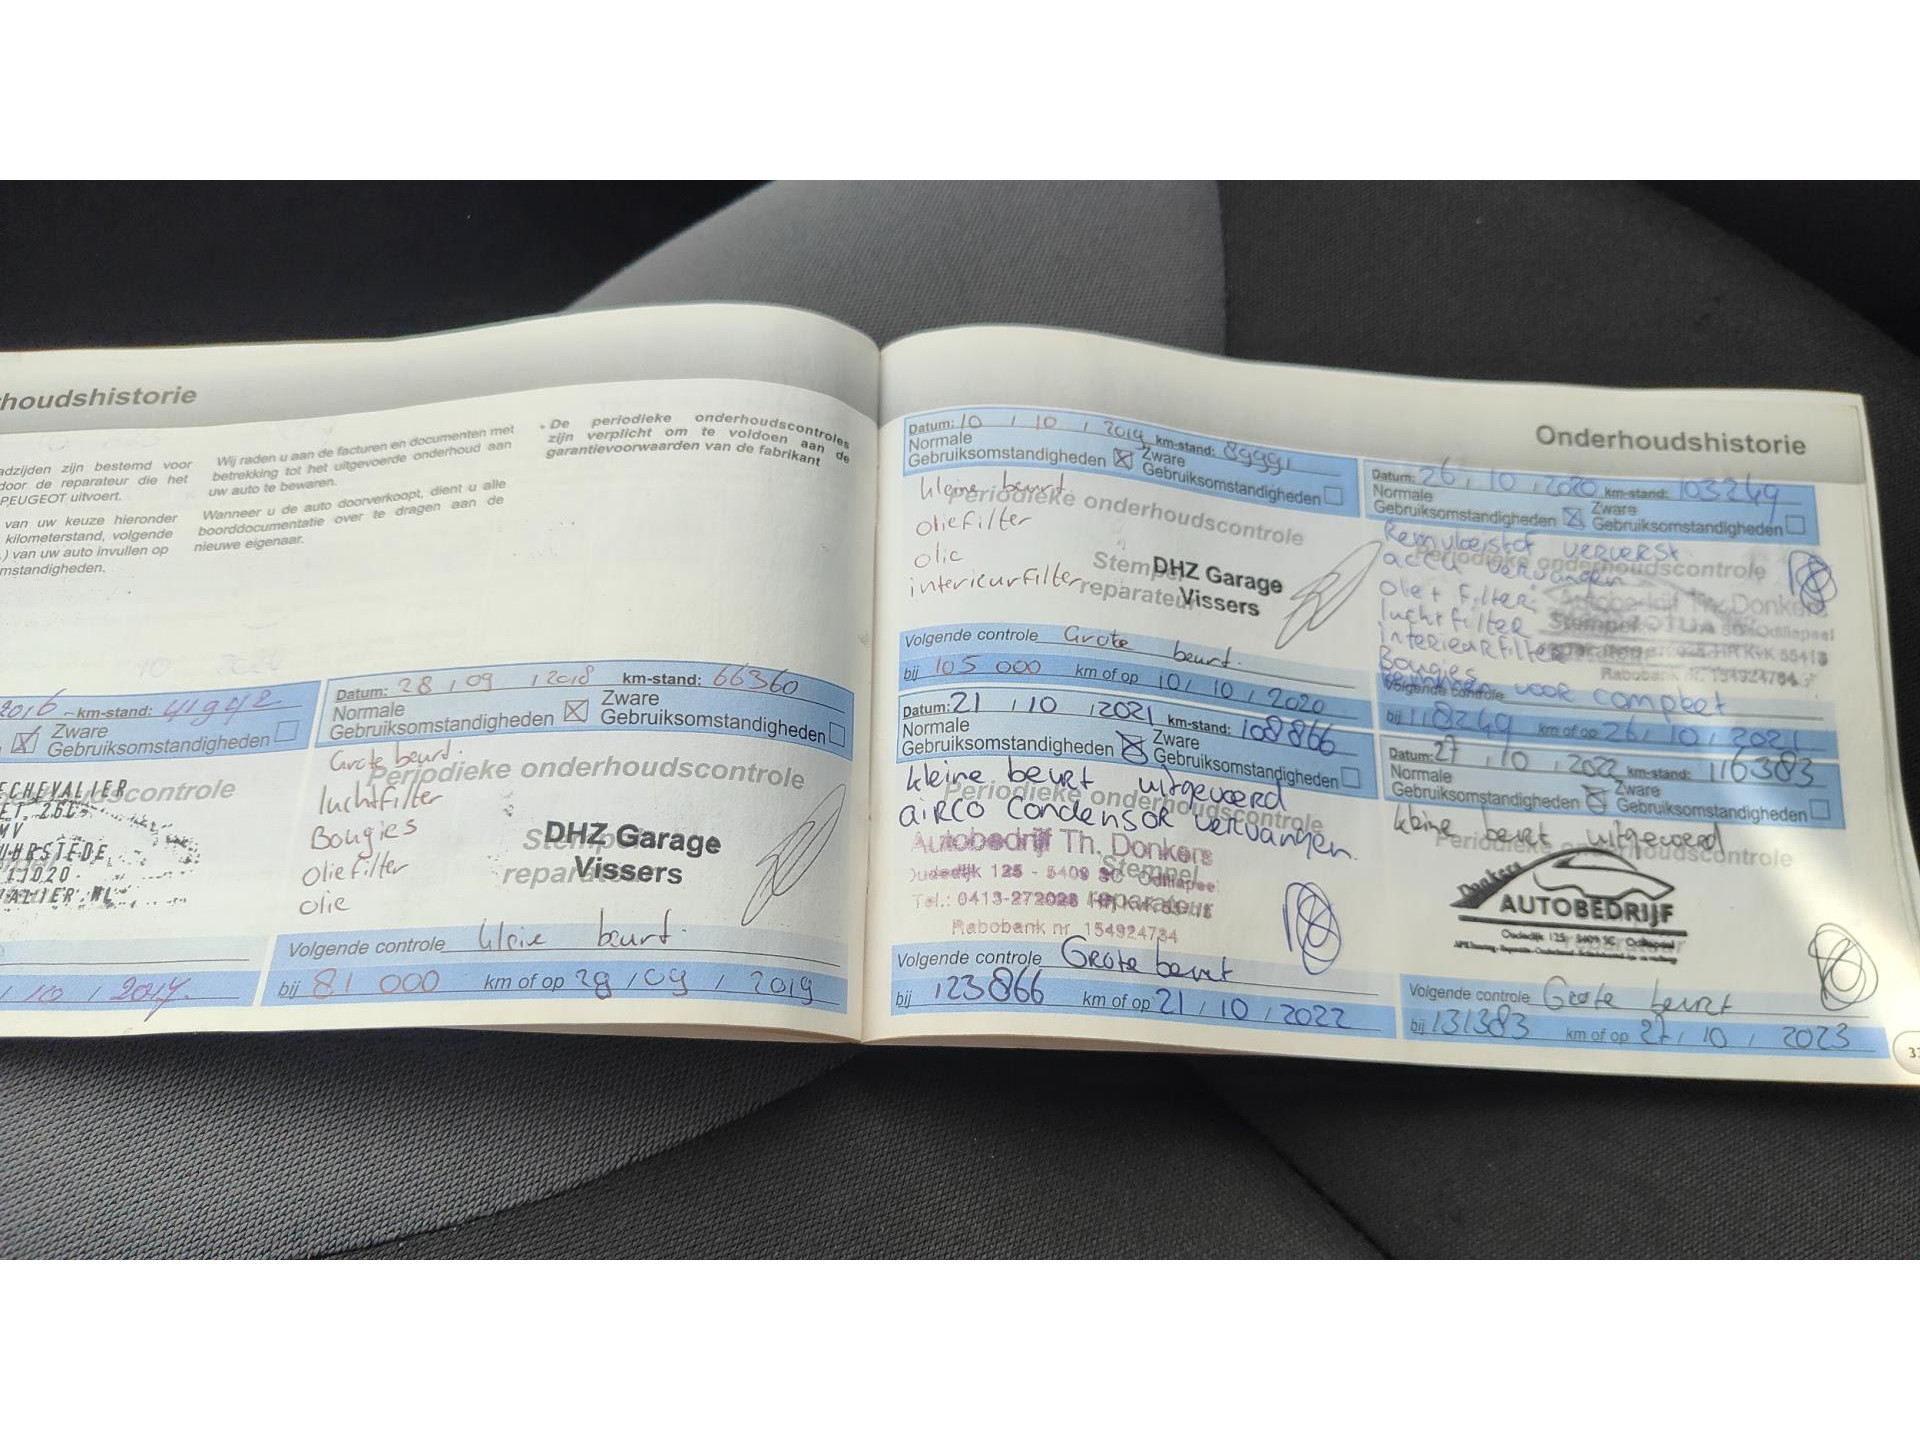 houdshistorie
adzijden zijn bestemd voor
door de reparateur die het
PEUGEOT uitvoert.
van uw keuze hieronder
kilometerstand, volgende
.) van uw auto invullen op
mstandigheden.
Wij raden u aan de facturen en documenten met
betrekking tot het uitgevoerde onderhoud aan
uw auto te bewaren.
Wanneer u de auto doorverkoopt, dient u alle
boorddocumentatie over te dragen aan de
nieuwe eigenaar.
• De periodieke onderhoudscontroles
zijn verplicht om te voldoen aan de
garantievoorwaarden van de fabrikant
2016 km-stand: 41942
Zware
Gebruiksomstandigheden
ECHEVALIER
controle
UHRSTEDE
/ 10 / 2017
Datum: 28 / 09 / 2018 km-stand: 66360
Normale
Gebruiksomstandigheden
Zware
Gebruiksomstandigheden
Grote beurt.
Periodieke onderhoudscontrole
luchtfilter
Bougies
oliefilter
olie
DHZ Garage
Vissers
Volgende controle kleine beurt.
bij 81 000 km of op 28 / 09 / 2019
Datum: 10 / 10 / 2019 km-stand: 89991
Normale
Gebruiksomstandigheden
Zware
Gebruiksomstandigheden
kleine beurt
Periodieke onderhoudscontrole
oliefilter
olie
interieurfilter
Stempel
reparateur
DHZ Garage
Vissers
Volgende controle Grote beurt.
bij 105 000 km of op 10 / 10 / 2020
Datum: 21 / 10 / 2021 km-stand: 108866
Normale
Gebruiksomstandigheden
Zware
Gebruiksomstandigheden
kleine beurt uitgevoerd
Periodieke onderhoudscontrole
airco condensor vervangen.
Autobedrijf Th. Donkers
Oudedijk 125 - 5409 SC Odiliapeel
Stempel
Tel.: 0413-272028
reparateur
Rabobank nr. 154924784
Volgende controle Grote beurt
bij 123866 km of op 21 / 10 / 2022
Onderhoudshistorie
Datum: 26 / 10 / 2020 km-stand: 103249
Normale
Gebruiksomstandigheden
Zware
Gebruiksomstandigheden
Remvloeistof ververst
Periodieke onderhoudscontrole
accu vervangen
olie + filter
Autobedrijf Th. Donkers
luchtfilter
Stempel
interieurfilter
Bougies
Rabobank nr. 154924784
Volgende controle
voor compleet
bij 118249 km of op 26 / 10 / 2021
Datum: 27 / 10 / 2022 km-stand: 116383
Normale
Gebruiksomstandigheden
Zware
Gebruiksomstandigheden
kleine beurt uitgevoerd
Periodieke onderhoudscontrole
Donkers
AUTOBEDRIJF
Oudedijk 125 - 5409 SC Odiliapeel
Volgende controle Grote beurt
bij 131383 km of op 27 / 10 / 2023